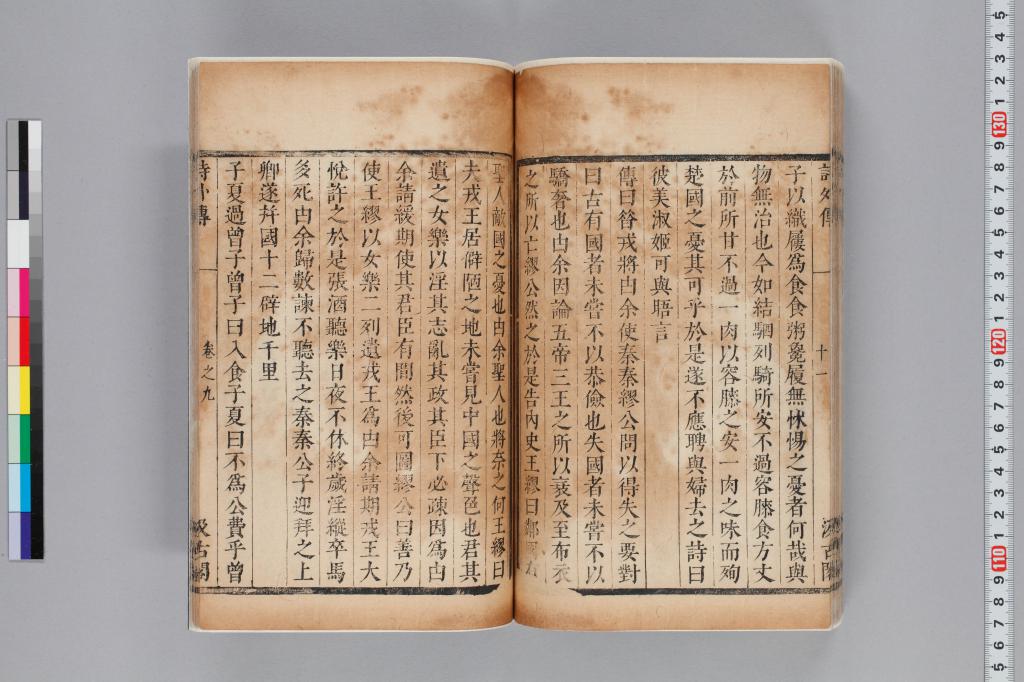 詩外傳
十一
汲古閣
子以織屨爲食食粥毚履無怵惕之憂者何哉與
物無治也今如結駟列騎所安不過容膝食方丈
於前所甘不過一肉以容膝之安一肉之味而殉
楚國之憂其可乎於是遂不應聘與婦去之詩曰
彼美淑姬可與晤言
傳曰昔戎將由余使秦秦繆公問以得失之要對
曰古有國者未嘗不以恭儉也失國者未嘗不以
驕奢也由余因論五帝三王之所以衰及至布衣
之所以亡繆公然之於是告內史王繆曰鄰國有
聖人敵國之憂也由余聖人也將奈之何王繆曰
夫戎王居僻陋之地未嘗見中國之聲色也君其
遺之女樂以淫其志亂其政其臣下必疎因爲由
余請緩期使其君臣有間然後可圖繆公曰善乃
使王繆以女樂二列遺戎王爲由余請期戎王大
悅許之於是張酒聽樂日夜不休終歲淫縱卒馬
多死由余歸數諫不聽去之秦秦公子迎拜之上
卿遂幷國十二辟地千里
子夏過曾子曾子曰入食子夏曰不爲公費乎曾
詩外傳
卷之九
汲古閣
5 4 3 2 1 130 9 8 7 6 5 4 3 2 1 120 9 8 7 6 5 4 3 2 1 110 9 8 7 6 5